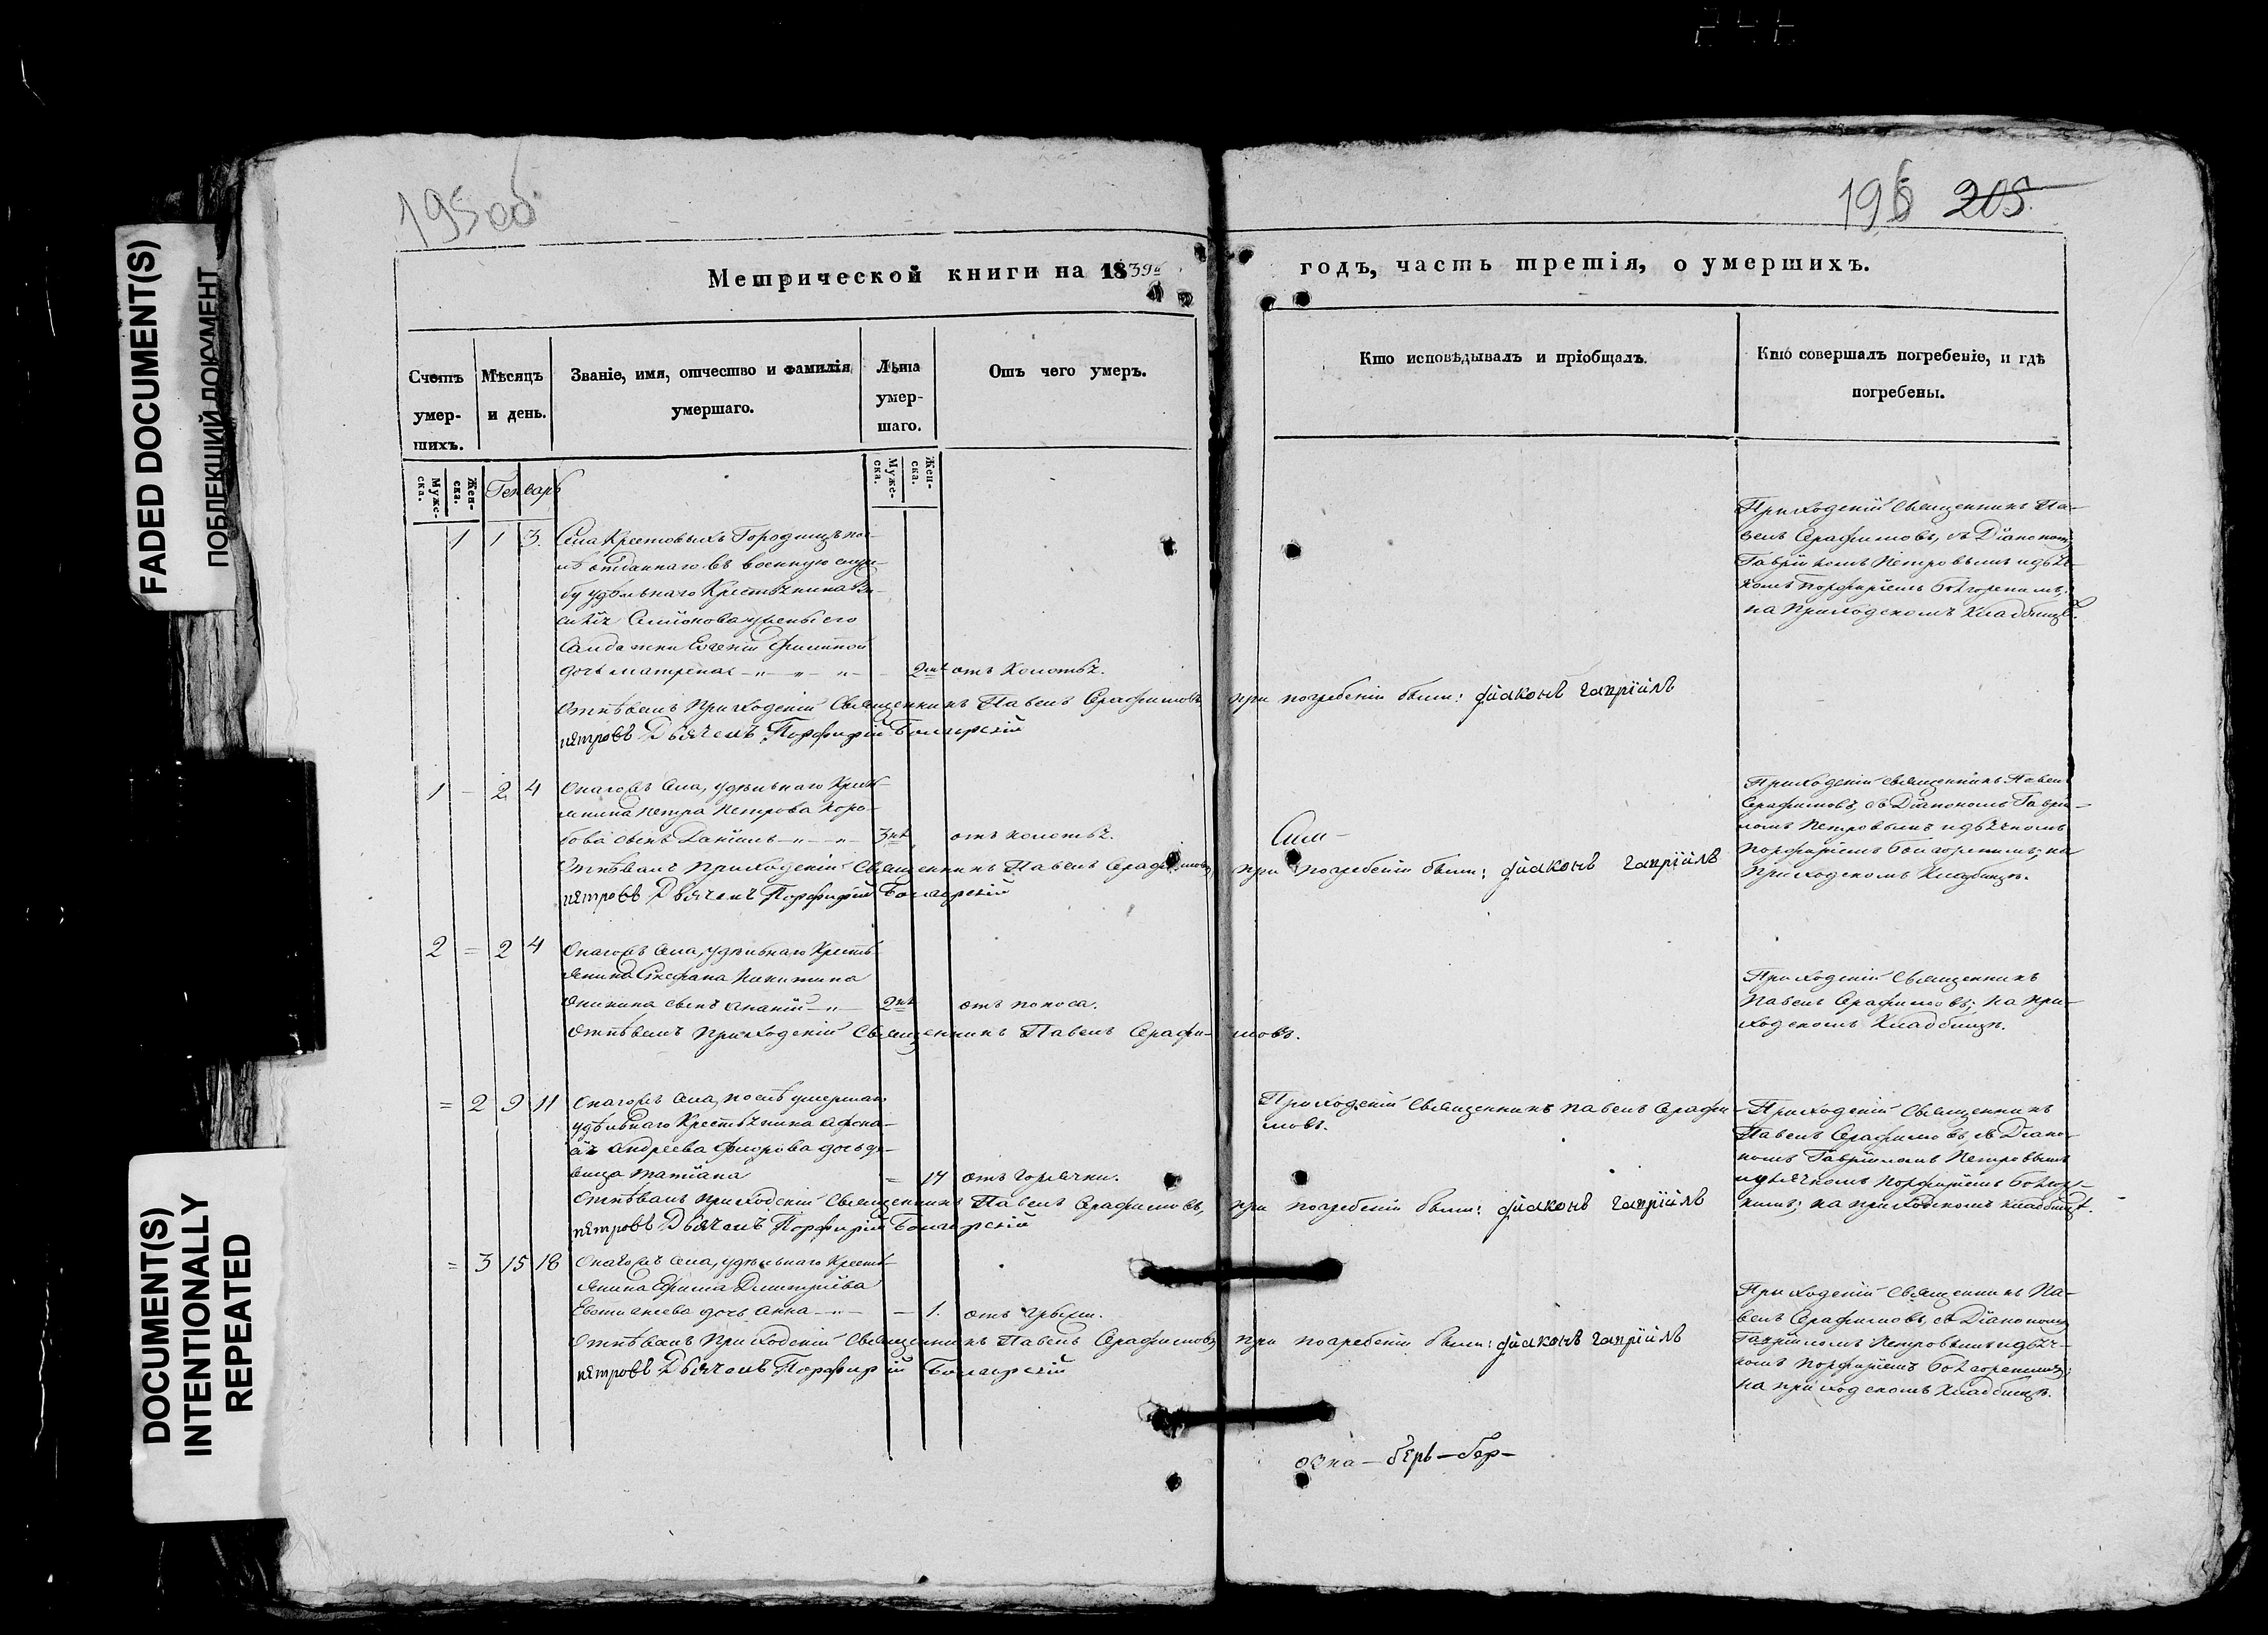 195об
196 205
FADED DOCUMENT(S)
ПОБЛЕКШИЙ ДОКУМЕНТ
DOCUMENT(S)
INTENTIONALLY
REPEATED
Метрической книги на 1839й
годъ, часть третія, о умершихъ.
Счетъ умер-шихъ.
Мѣсяцъ и день.
Званіе, имя, отчество и фамилія умершаго.
Лѣта умер-шаго.
Отъ чего умеръ.
Кто исповѣдывалъ и пріобщалъ.
Кто совершалъ погребеніе, и гдѣ погребены.
Муже-ска.
Жен-ска.
Генварь
Муже-ска.
Жен-ска.
1 1 3. Села Крестовыхъ Городищъ по-
лѣ отданнаго въ военную служ-
бу удѣльнаго Крестьянина Ва-
силія Симіонова жены его
Салдатки Евгеніи
дочь матрена 2лѣ отъ колотья.
Отпѣвалъ Приходскій Священникъ Павелъ Серафимовъ при погребеніи были: діаконъ гавріилъ
петровъ Дьячекъ Порфирій Болгарскій
Приходскій Священникъ Па-
велъ Серафимовъ, съ Діакономъ
Гавріиломъ Петровымъ и дьяч-
комъ Порфиріемъ
на Приходскомъ Кладбищѣ.
1 – 2 4 Онагожъ села, удѣльнаго Крест-
янина петра петрова Коро-
бова сынъ Даніилъ 3лѣ отъ колотья.
Отпѣвалъ Приходскій Священникъ Павелъ Серафимовъ при погребеніи были: діаконъ гавріилъ
петровъ Дьячекъ Порфирій Болгарскій
Сим-
Приходскій священникъ Павелъ
Серафимовъ, съ Діакономъ Гаврі-
ломъ Петровымъ и дьячкомъ
Порфиріемъ Болгорскимъ; на
Приходскомъ Кладбищѣ.
2 = 2 4 Онагожъ села, удѣльнаго Кресть-
янина Стефана Никитина
Аникина сынъ Ананій 2лѣ отъ поноса.
Отпѣвалъ Приходскій Священникъ Павелъ Серафи-мовъ.
Приходскій Священникъ
Павелъ Серафимовъ; на при-
ходскомъ Кладбищѣ.
= 2 9 11 Онагожъ села, послѣ умершаго
удѣльнаго Крестьянина афона-
сія Андреева Фиорова дочь дѣ-
вица Татіана = 17 отъ горячки.
Отпѣвалъ приходскій Священникъ Павелъ Серафимовъ, при погребеніи были: діаконъ гавріилъ
петровъ Дьячекъ Порфирій Болгарскій
Приходскій Священникъ Павелъ Серафи-
мовъ.
Приходскій Священникъ
Павелъ Серафимовъ, съ Діако-
номъ Гавріиломъ Петровымъ
и дьячкомъ Порфиріемъ Болгор-
скимъ; на приходскомъ кладбищѣ.
= 3 15 18 Онагожъ села, удѣльнаго Кресть-
янина Ефима Димитріева
дочь Анна – 1. отъ грыжи.
Отпѣвалъ Приходскій Священникъ Павелъ Серафимовъ при погребеніи были: діаконъ гавріилъ
петровъ Дьячекъ Порфирій Болгарскій
Приходскій Священникъ Па-
велъ Серафимовъ, съ Діакономъ
Гавріиломъ Петровымъ и дьяч-
комъ Порфиріемъ Болгорскимъ;
на приходскомъ Кладбищѣ.